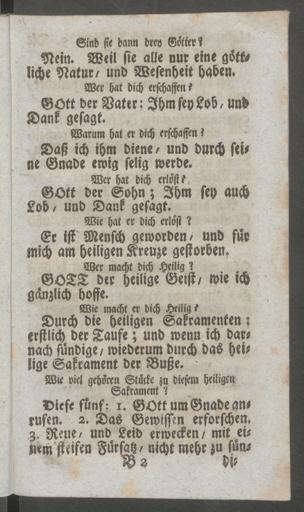 Sind sie dann drey Götter?
Nein. Weil sie alle nur eine gött-
liche Natur, und Wesenheit haben.
Wer hat dich erschaffen?
GOtt der Vater: Ihm sey Lob, und
Dank gesagt.
Warum hat er dich erschaffen?
Daß ich ihm diene, und durch sei-
ne Gnade ewig selig werde.
Wer hat dich erlöst?
GOtt der Sohn; Ihm sey auch
Lob, und Dank gesagt.
Wie hat er dich erlöst?
Er ist Mensch geworden, und für
mich am heiligen Kreuze gestorben.
Wer macht dich Heilig?
GOTT der heilige Geist, wie ich
gänzlich hoffe.
Wie macht er dich Heilig?
Durch die heiligen Sakramenten:
erstlich der Taufe; und wenn ich dar-
nach sündige, wiederum durch das hei-
lige Sakrament der Buße.
Wie viel gehören Stücke zu diesem heiligen
Sakrament?
Diese fünf: 1. GOtt um Gnade an-
rufen. 2. Das Gewissen erforschen.
3. Reue, und Leid erwecken, mit ei-
nem steifen Fürsatz, nicht mehr zu sün-
B 2 di-